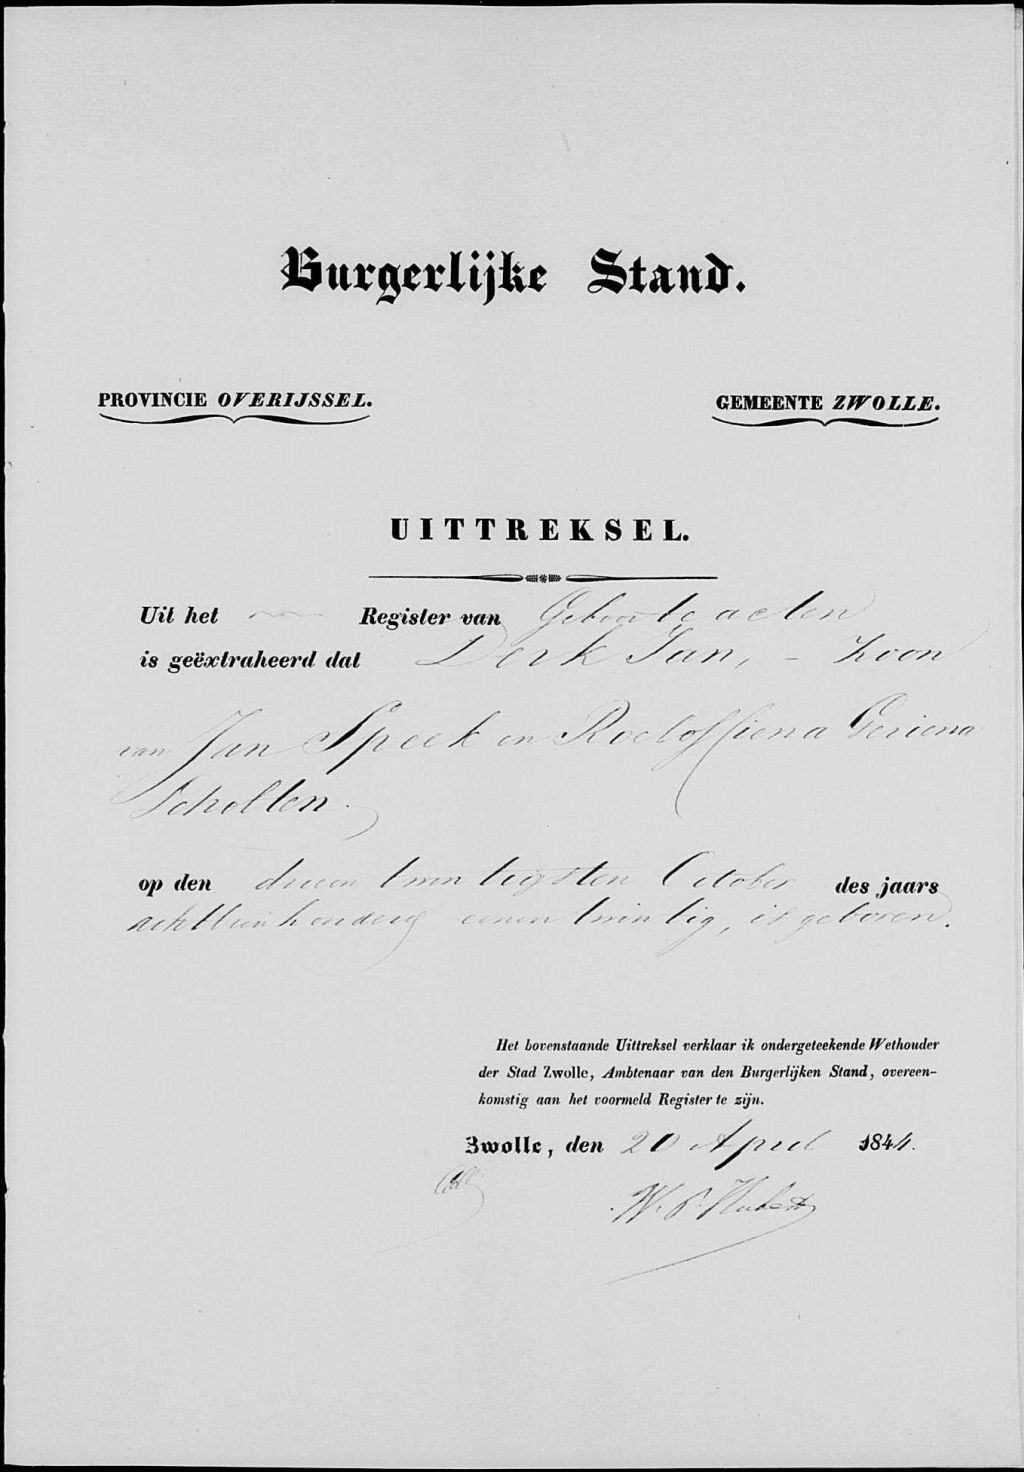 Burgerlijke Stand.
PROVINCIE OVERIJSSEL.
GEMEENTE ZWOLLE.
UITTREKSEL.
Uit het Register van Geboorte acten
is geëxtraheerd dat Derk Jan, - Zoon
van Jan Speek en Roeloffiena Geriena
Scholten.
op den drieen twintigsten October des jaars
achttienhonderd eenen twintig, is geboren.
Het bovenstaande Uittreksel verklaar ik ondergeteekende Wethouder
der Stad Zwolle, Ambtenaar van den Burgerlijken Stand, overeen-
komstig aan het voormeld Register te zijn.
Zwolle, den 20 April 1844.